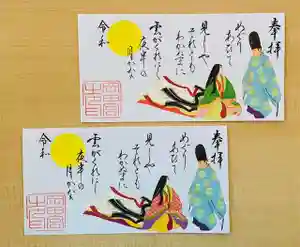 奉拝
めぐり
あひて
見しや
それとも
わかぬまに
雲がくれにし
夜半の
月かな
令和
奉拝
めぐり
あひて
見しや
それとも
わかぬまに
雲がくれにし
夜半の
月かな
令和